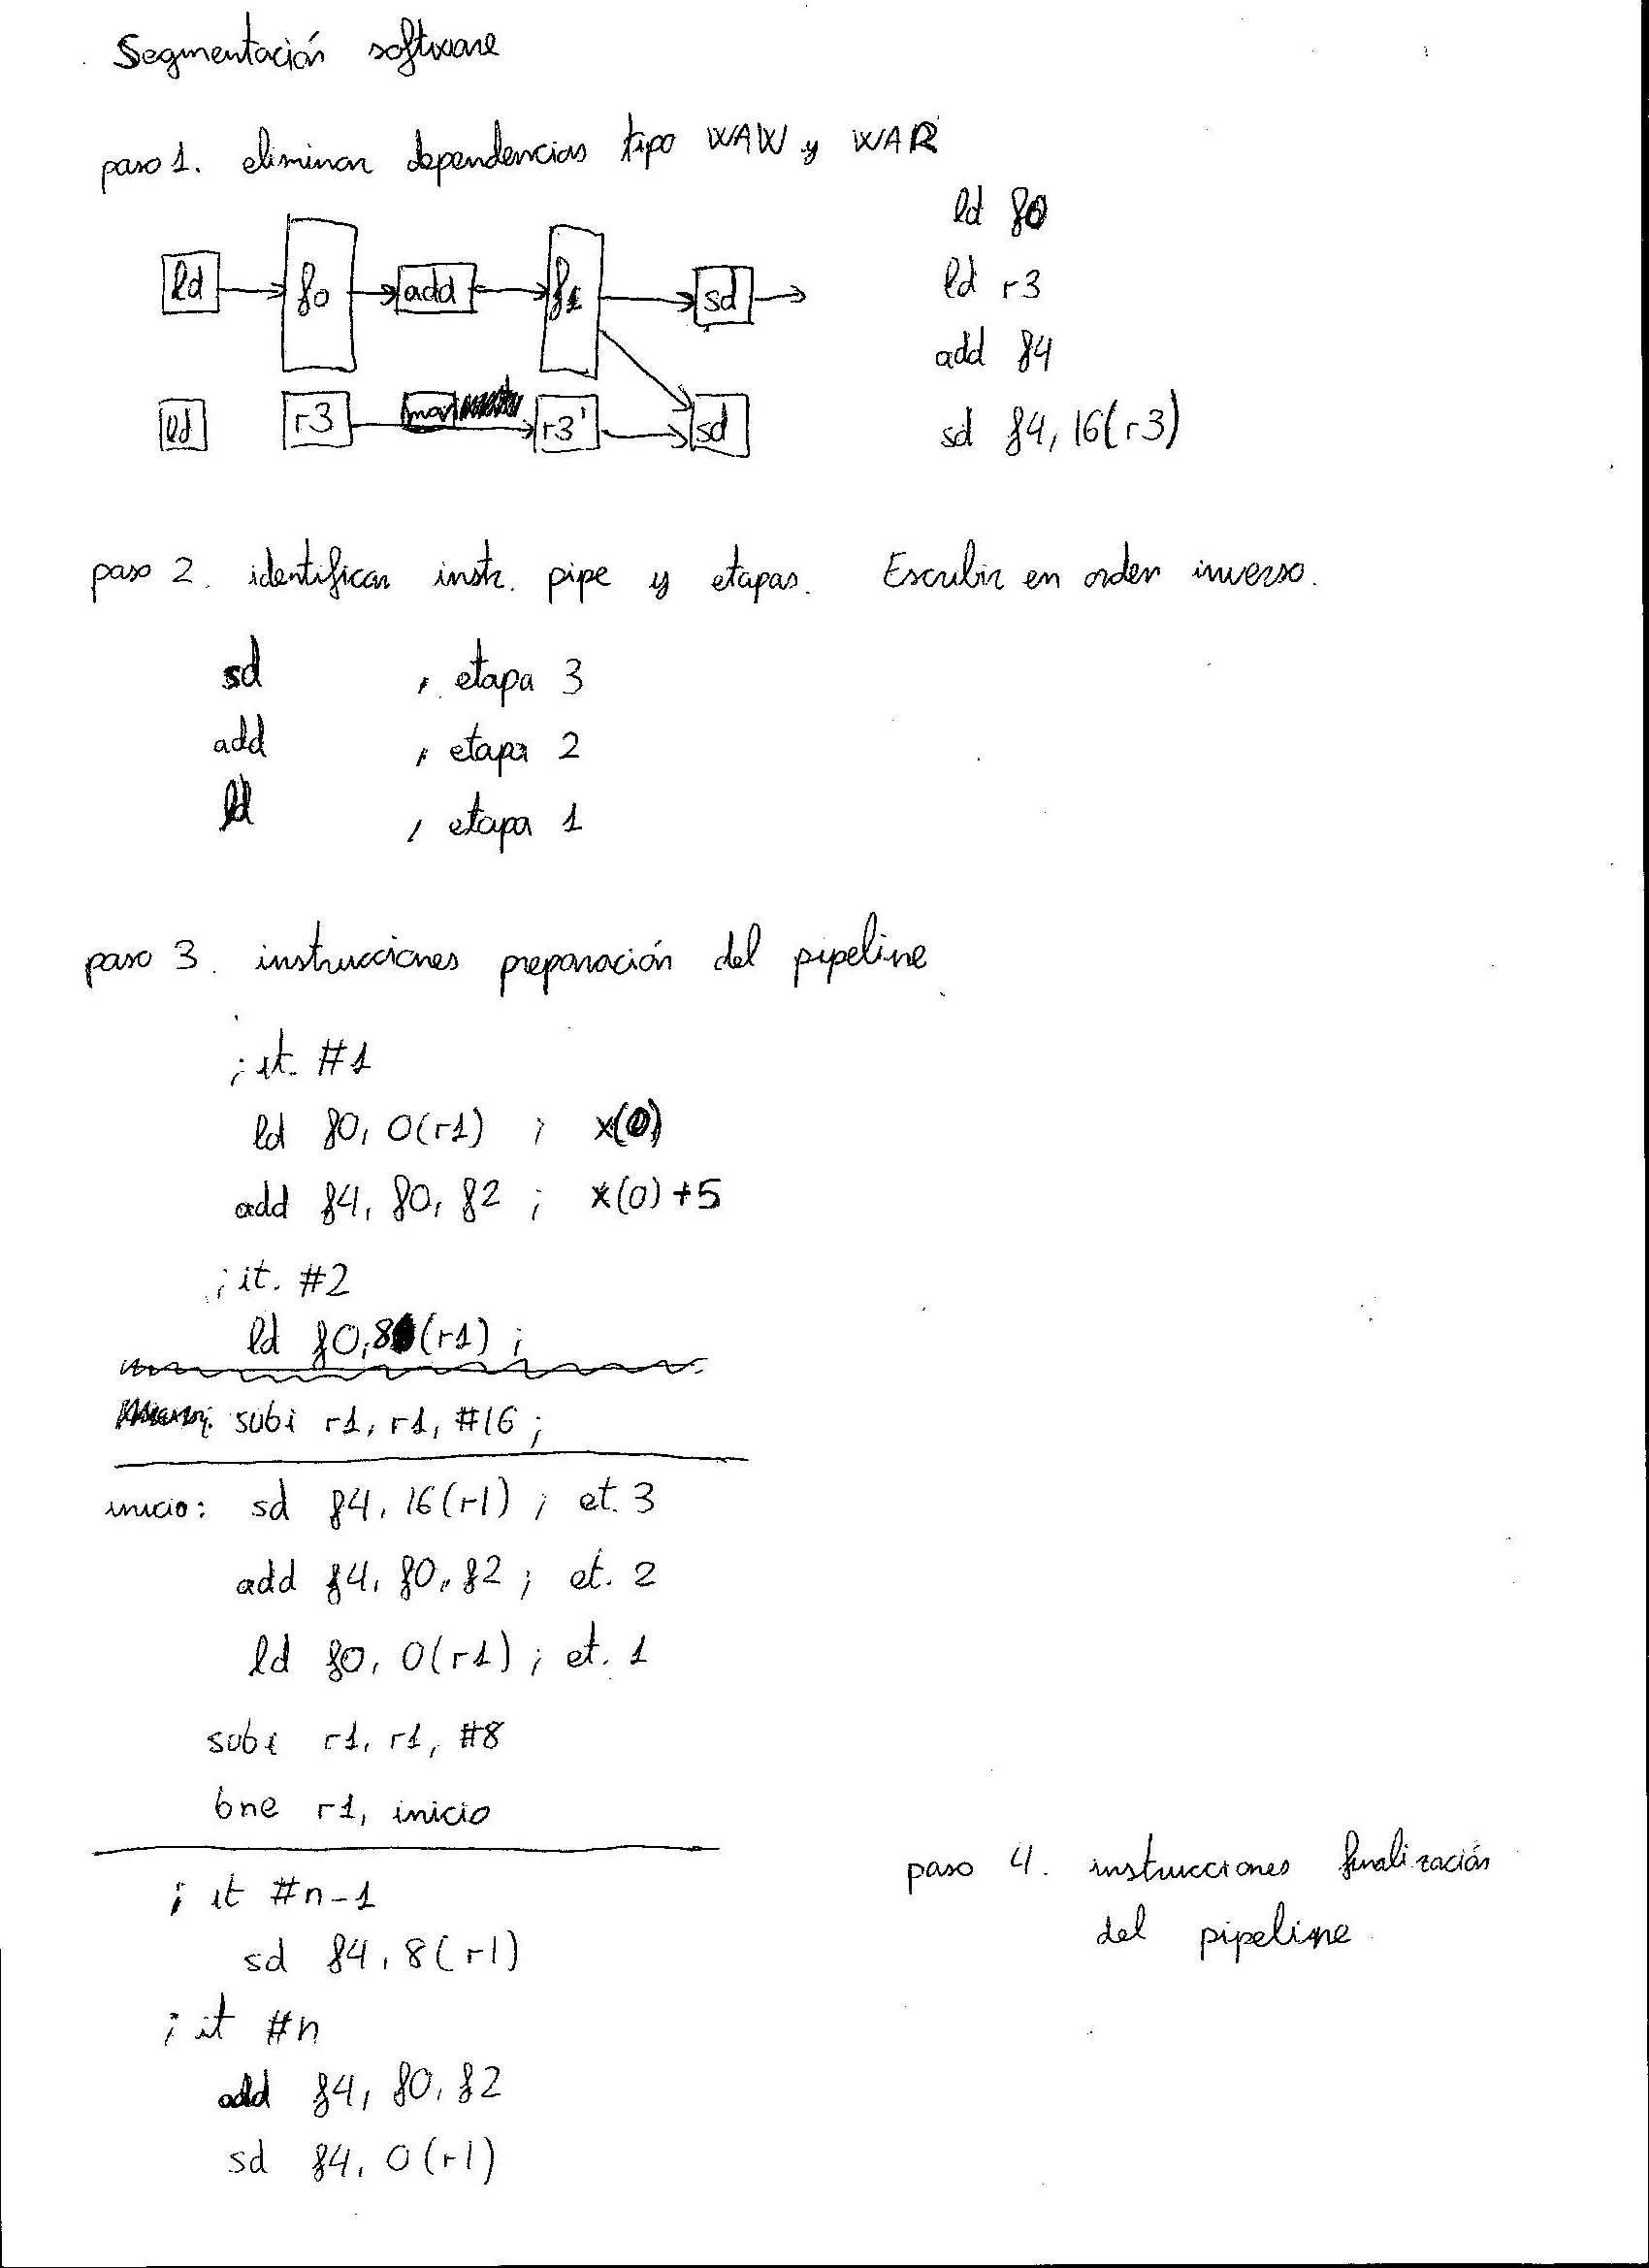 Segmentación software
paso 1. eliminar dependencias tipo WAW y WAR
ld f0
ld r3
add f4
sd f4, 16(r3)
ld f0 add f4 sd
ld r3 mov r3' sd
paso 2. identificar instr. pipe y etapas. Escribir en orden inverso.
sd , etapa 3
add , etapa 2
ld , etapa 1
paso 3. instrucciones preparación del pipeline
; it. #1
ld f0, 0(r1) ; x(0)
add f4, f0, f2 ; x(0)+5
; it. #2
ld f0, 8(r1) ;
subi r1, r1, #16 ;
inicio: sd f4, 16(r1) ; et. 3
add f4, f0, f2 ; et. 2
ld f0, 0(r1) ; et. 1
subi r1, r1, #8
bne r1, inicio
; it #n-1
sd f4, 8(r1)
; it #n
add f4, f0, f2
sd f4, 0(r1)
paso 4. instrucciones finalización
del pipeline